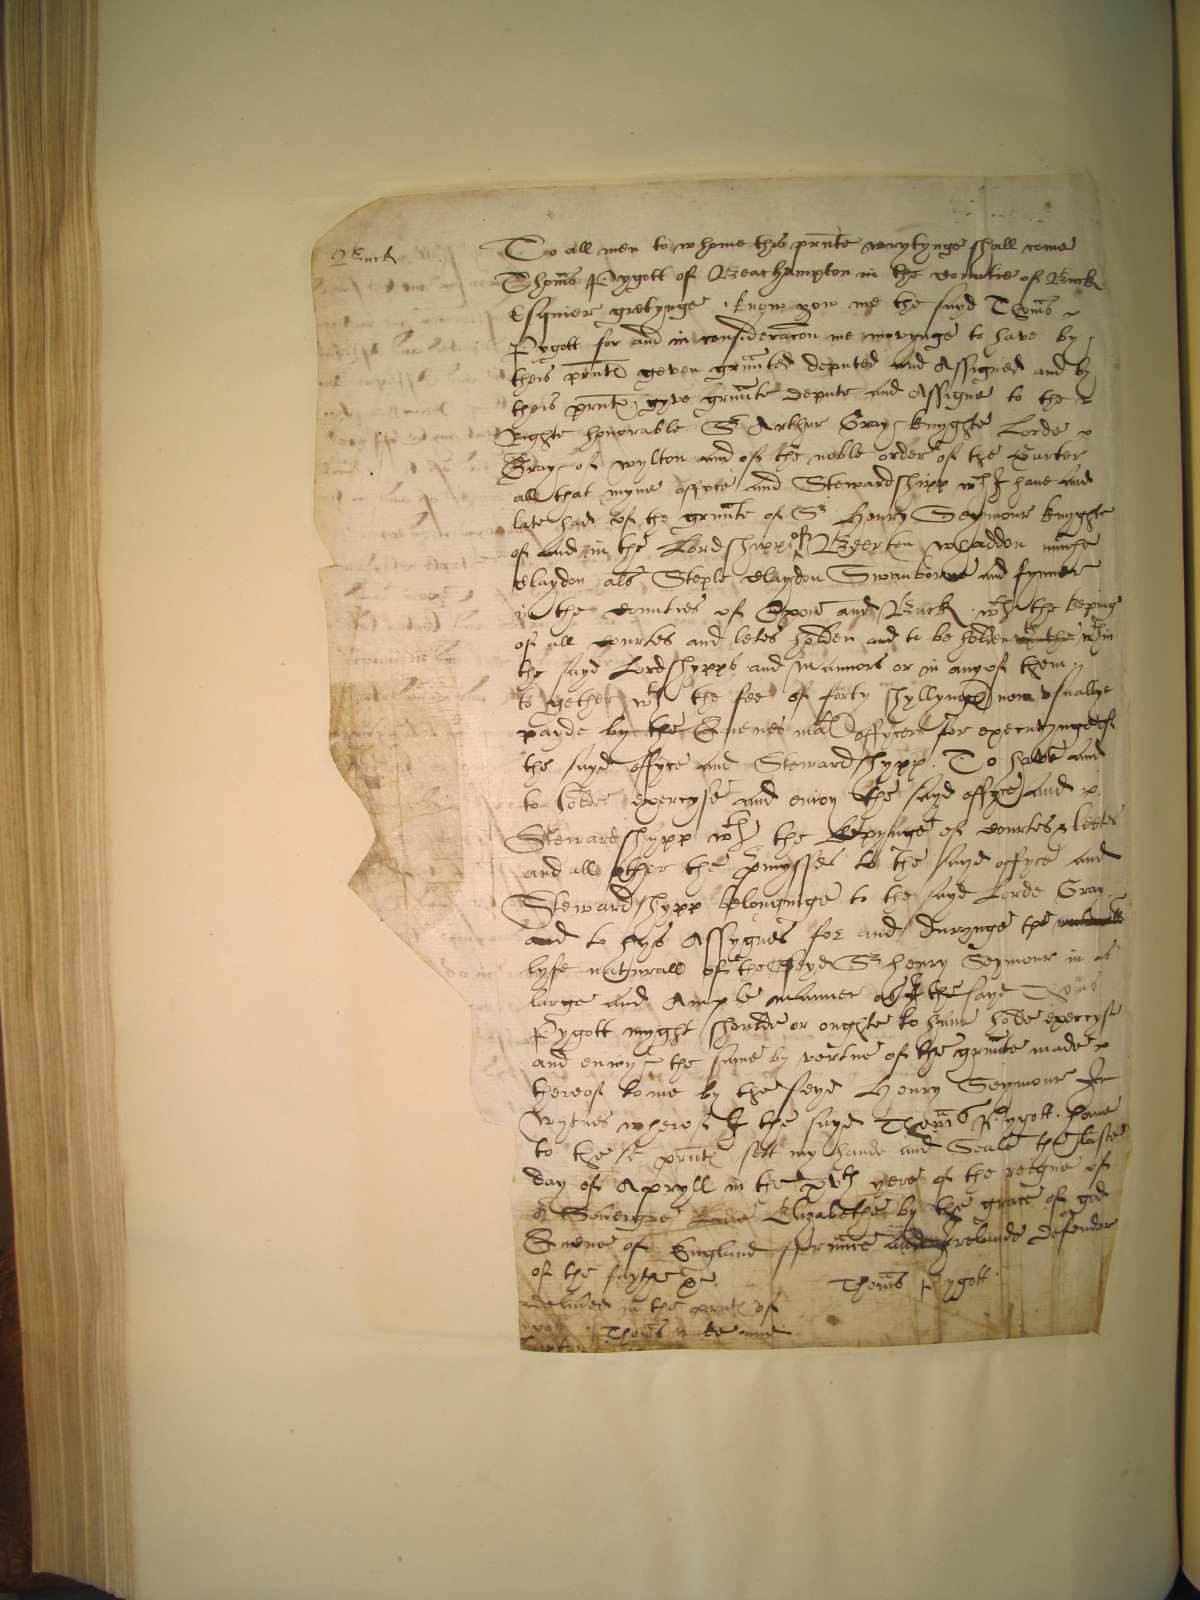 Buck
To all men to whome this prnte wrytynge shall come
Thoms Pygott of Beachampton in the countie of Buck
Esquier gretynge . know yow me the sayd Thoms
Pygott for and in consideracon me movynge to have by
theis prnts geven grunted deputed and Assigned and by
theis prnts gyve grunte depute and Assigne to the
Righte honorable Sr Arthur Gray knyghte Lorde
Gray of wylton and of the noble order of the Garter
all that myne offyce and Stewardshipp wch I have and
late had of the grunte of Sr Henry Seymour knyghte
of and in the Lordshypps of Bierton whaddon
Claydon als Steple Claydon Swanborne and
in the counties of Oxon and Buck wth the keping
of all courtes and letes holden and to be holden wthin
the sayd Lordshypps and Mannors or in any of them
to gether wth the fee of forty shyllyngs now usuallye
payde by the Quenes mats offycers for executynge of
the sayd offyce and Stewardshypp . To have and
to holde exercyse and enioy the sayd offyce and
Stewardshypp wth the kepynge of courtes & leetes
and all other the pmysses to the sayd offyce and
Stewardshypp belonginge to the sayd Lorde Gray
and to hys Assygnes for and durynge the
lyfe naturall of the seyd Sr henry Seymour in as
large and Ample manner as I the sayd Thoms
Pygott myght shoulde or oughte to have holde exercyse
and enioye the same by vertue of the grunte made
thereof to me by the seyd Henry Seymour In
Wytnes whereof I the sayd Thoms Pygott have
to these prnts sett my hande and Seale the laste
day of Apryll in the xvth yere of the reigne of
or Sovereigne Ladie Elizabethe by the grace of god
Quene of England ffrunce and Irelande defender
of the faythe &c.
Thoms Pygott
delivered in the prnts of
Thoms and